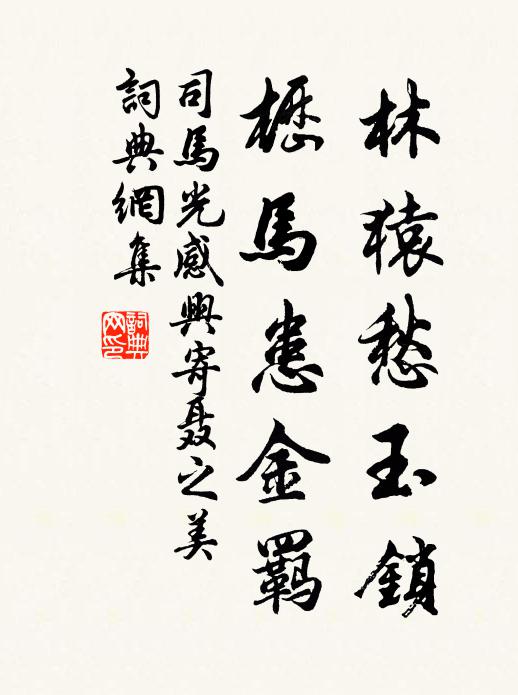 林猿愁玉鎖
櫪馬恚金羈
司馬光感興寄聶之美
詞典網集
詞典網印